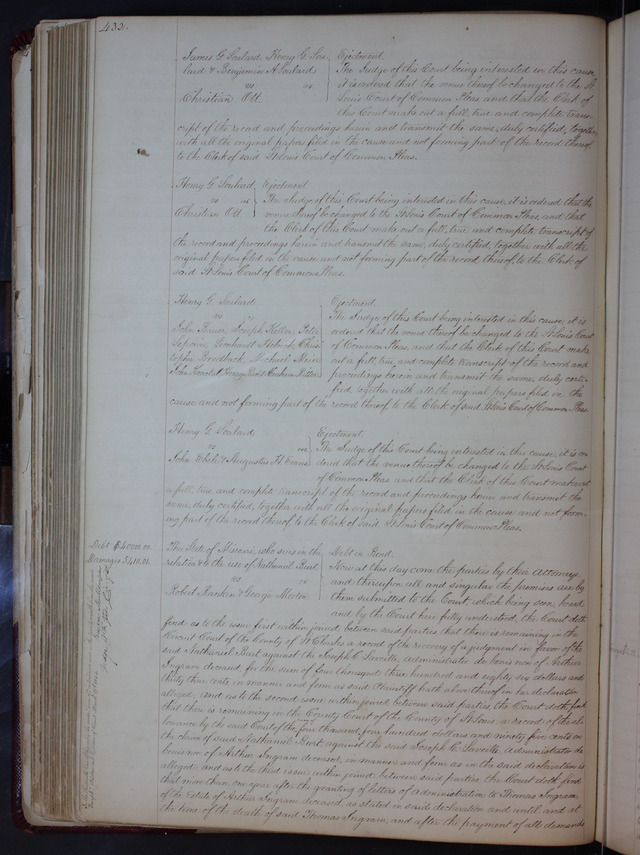 432.
James G. Soulard, Henry G. Sou-
lard & Benjamin A. Soulard
vs
Christian Ott
Ejectment.
The Judge of this Court being interested in this cause,
it is ordered that the venue thereof be changed to the St.
Louis Court of Common Pleas, and that the Clerk of
this Court make out a full, true and complete trans-
cript of the record and proceedings herein and transmit the same, duly certified, together
with all the original papers filed in the cause and not forming part of the record thereof
to the Clerk of said St Louis Court of Common Pleas.
Henry G Soulard
vs
Christian Ott
Ejectment
The Judge of this Court being interested in this cause, it is ordered that the
venue thereof be changed to the St Louis Court of Common Pleas, and that
the Clerk of this Court make out a full, true and complete transcript of
the record and proceedings herein and transmit the same, duly certified, together with all the
original papers filed in the cause and not forming part of the record thereof, to the Clerk of
said St Louis Court of Common Pleas.
Henry G Soulard
vs
John Joseph Keller, Peter
Ejectment.
The Judge of this Court being interested in this cause, it is
ordered that the venue thereof be changed to the St Louis Court
of Common Pleas, and that the Clerk of this Court make
out a full, true, and complete transcript of the record and
proceedings herein and transmit the same, duly certi-
fied, together with all the original papers filed in the
cause and not forming part of the record thereof to the Clerk of said St Louis Court of Common Pleas.
Henry G Soulard
vs
John & Augustus H Evans
Ejectment.
The Judge of this Court being interested in this cause, it is or-
dered that the venue thereof be changed to the St Louis Court
of Common Pleas and that the Clerk of this Court make out
a full, true and complete transcript of the record and proceedings herein and transmit the
same, duly certified, together with all the original papers filed in the cause and not form-
ing part of the record thereof to the Clerk of said St Louis Court of Common Pleas.
Debt $
Damages
The State of Missouri, who sues at the
relation & to the use of Nathaniel Burt
vs
Robert Rankin & George Morton
Debt on Bond.
Now at this day come the parties by their attorneys
and thereupon all and singular the premises are by
them submitted to the Court, which being seen, heard
and by the Court here fully understood, the Court doth
find as to the issue first within joined between said parties that there is remaining in the
Circuit Court of the County of St Charles a record of the recovery of a judgment in favor of the
said Nathaniel Burt against the Joseph C Lavielle, administrator de bonis non of Arthur
Ingram deceased for the sum of four thousand three hundred and eighty six dollars and
thirty three cents in manner and form as said Plaintiff hath above thereof in her declaration
alleged; and as to the second issue within joined between said parties, the Court doth find
that there is remaining in the County Court of the County of St Louis, a record of the al-
lowance by the said Court of the four thousand, four hundred dollars and ninety five cents on
the claim of said Nathaniel Burt against the said Joseph C Lavielle administrator de
bonis non of Arthur Ingram deceased, in manner and form as in the said declaration is
alleged; and as to the third issue within joined between said parties the Court doth find
that more than one year after the granting of letters of administration to Thomas Ingram,
of the Estate of Arthur Ingram deceased, as stated in said declaration and until and at
the time of the death of said Thomas Ingram, and after the payment of all demands